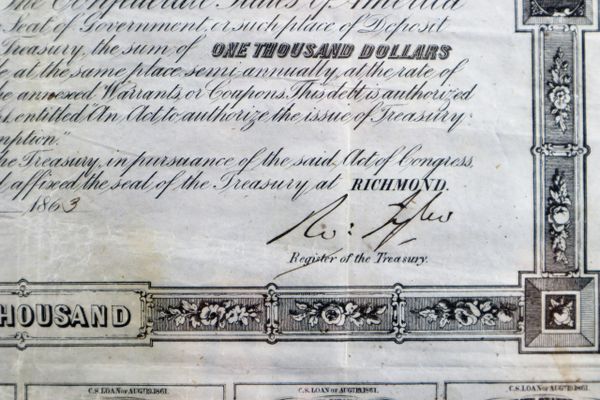 the Confederate States of America
Seat of Government, or such place of Deposit
Treasury, the sum of ONE THOUSAND DOLLARS
at the same place semi-annually, at the rate of
annexed Warrants, or Coupons. This debt is authorized
entitled "An Act, to authorize the issue of Treasury
the Treasury, in pursuance of the said Act of Congress,
affixed the seal of the Treasury, at RICHMOND.
1863
Ro: Tyler
Register of the Treasury.
THOUSAND
C.S. LOAN OF AUG. 19, 1861.
C.S. LOAN OF AUG. 19, 1861.
C.S. LOAN OF AUG. 19, 1861.